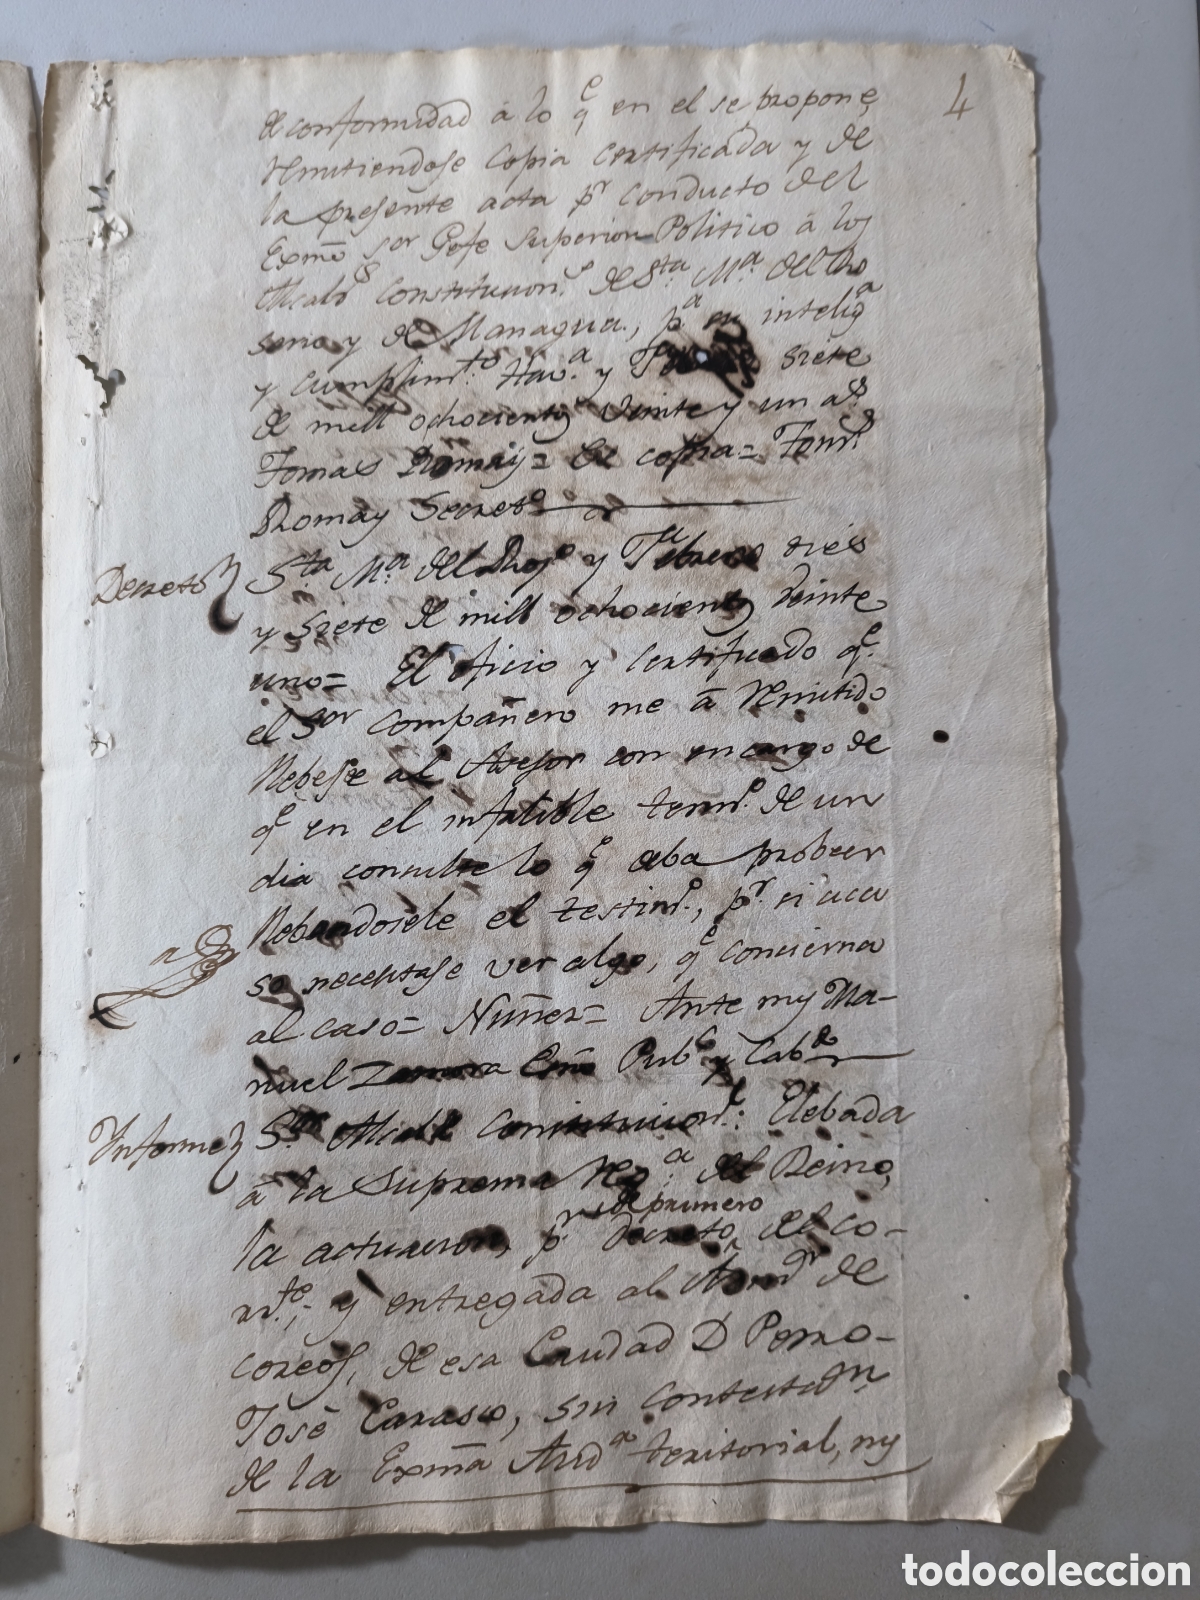 4
de conformidad á lo qe en el se propone,
remitiendose Copia certificada y de
la presente acta pr conducto del
Exmo sor Gefe Superior Politico á los
Alcals Constitucions de Sta Ma. del Ro
sario y de Managua, pa su inteliga
y cumplimto. Hava. y siete
de mill ochocients veinte y un as
Tomas Romay = Es copia = Toms
Romay Secreto
Decreto Sta Ma del Roso y Febrero dies
y siete de mill ochocients veinte
uno = El oficio y certificado qe.
el Sor Compañero me á remitido
llebese al Asesor con encargo de
qe en el infalible termo. de un
dia consulte lo qe deba probeer
llebandosele el testimo., pr. si aca
so nececitase ver algo, qe concierna
al caso = Nuñez = Ante my Ma-
nuel Zamora Esno Pubco y Cabdo
Informe Sor Alcale Constitucionl: Elebada
á la Suprema Rega. del Reino,
la actuacion, pr el primero decreto, del co-
rrte.; y entregada al Admor de
coreos, de esa Ciudad D Pedro
José Carasco, sin contestacn
de la Exma Auda teritorial, ny
todocoleccion